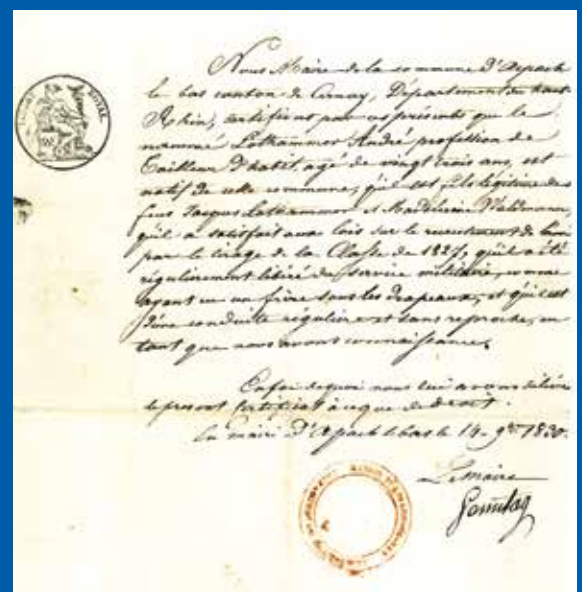 Nous Maire de la commune D'aspach
le bas canton de Cernay, Département du haut
Rhin, certifions par ces présentes que le
nommé Lothammer André profession de
Tailleur D'habit, agé de vingt trois ans, est
natif de cette commune, qu'il est fils légitime des
feus Jacques Lothammer et Madeleine Waldmann,
qu'il a satisfait aux lois sur le recrutement de
par le tirage de la Classe de 1827, qu'il a été
régulièrement libéré du service militaire, comme
ayant eu un frère sous les drapeaux, et qu'il est
d'une conduite régulière et sans reproche, en
tant que nous avons connaissance.
En foi de quoi nous lui avons délivré
le present Certificat à ce que de droit.
En mairie D'aspach le bas le 14 9bre 1830.
Le maire
ROYAL